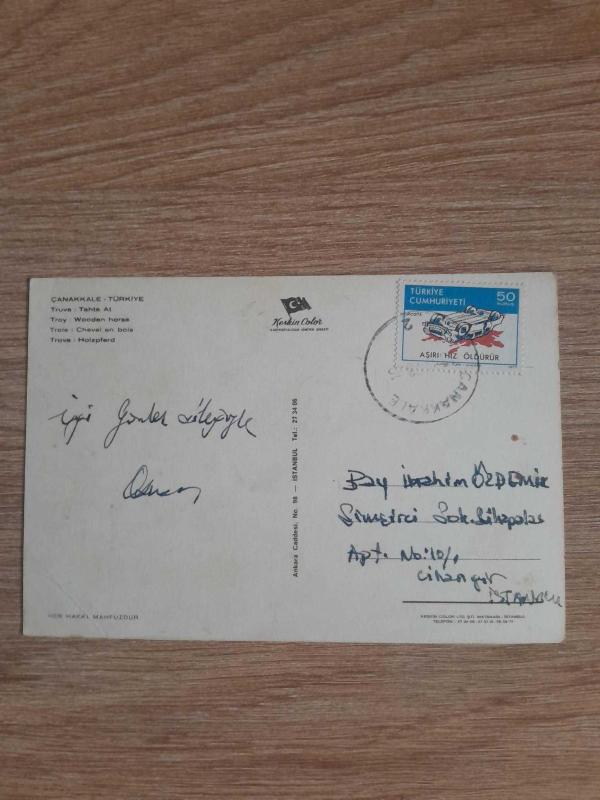 ÇANAKKALE - TÜRKİYE
Truva : Tahta At
Troy : Wooden horse
Troie : Cheval en bois
Trova : Holzpferd
Keskin Color
TÜRKİYE
CUMHURİYETİ
50
AŞIRI HIZ ÖLDÜRÜR
ÇANAKKALE
iyi günler dileğiyle
Ankara Caddesi, No. 98 — İSTANBUL Tel.: 27 34 06
Bay İbrahim ÖZDEMİR
Simsirci Sok.
Apt. No: 10/1
Cihangir
İSTANBUL
HER HAKKI MAHFUZDUR
KESKİN COLOR LTD. ŞTİ. MATBAASI - İSTANBUL